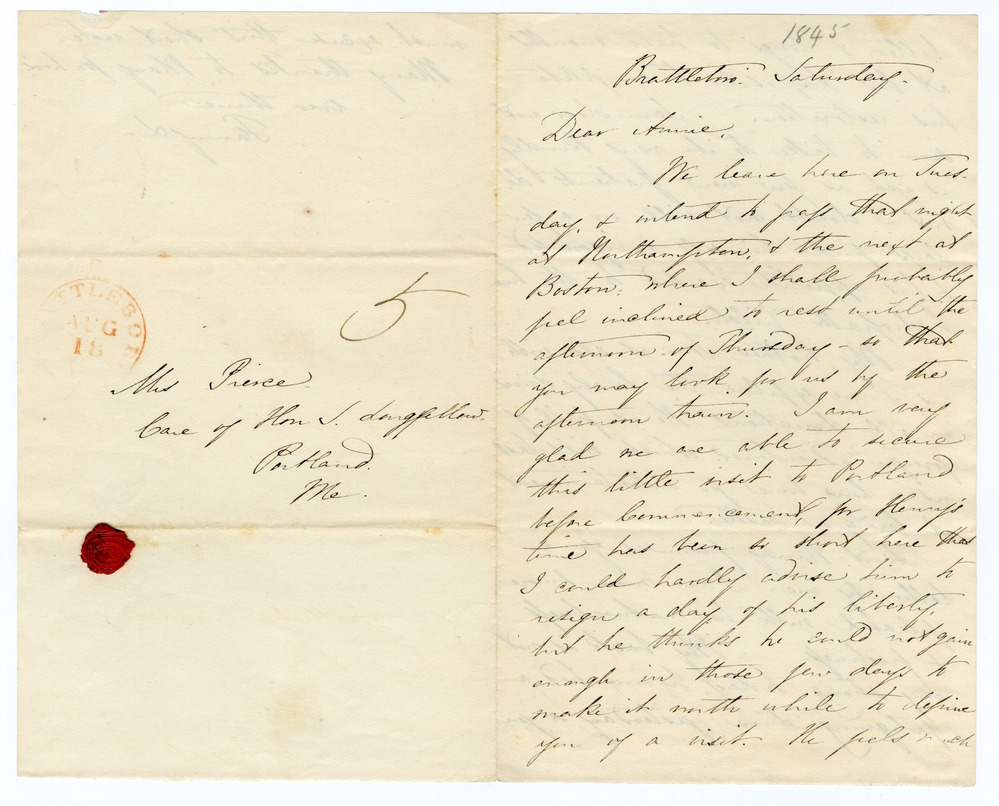 1845
Brattleboro. Saturday.
Dear Annie.
We leave here on Tues-
day, & intend to pass that night
at Northampton, & the next at
Boston, where I shall probably
feel inclined to rest until the
afternoon of Thursday - so that
you may look for us by the
afternoon train. I am very
glad we are able to secure
this little visit to Portland
before Commencement, for Henry's
time has been so short here that
I could hardly advise him to
resign a day of his liberty,
but he thinks he could not gain
enough in those few days to
make it worth while to deprive
you of a visit. He feels much
TTLEBO
AUG
18
5
Mrs Pierce.
Care of Hon S. Longfellow.
Portland.
Me.